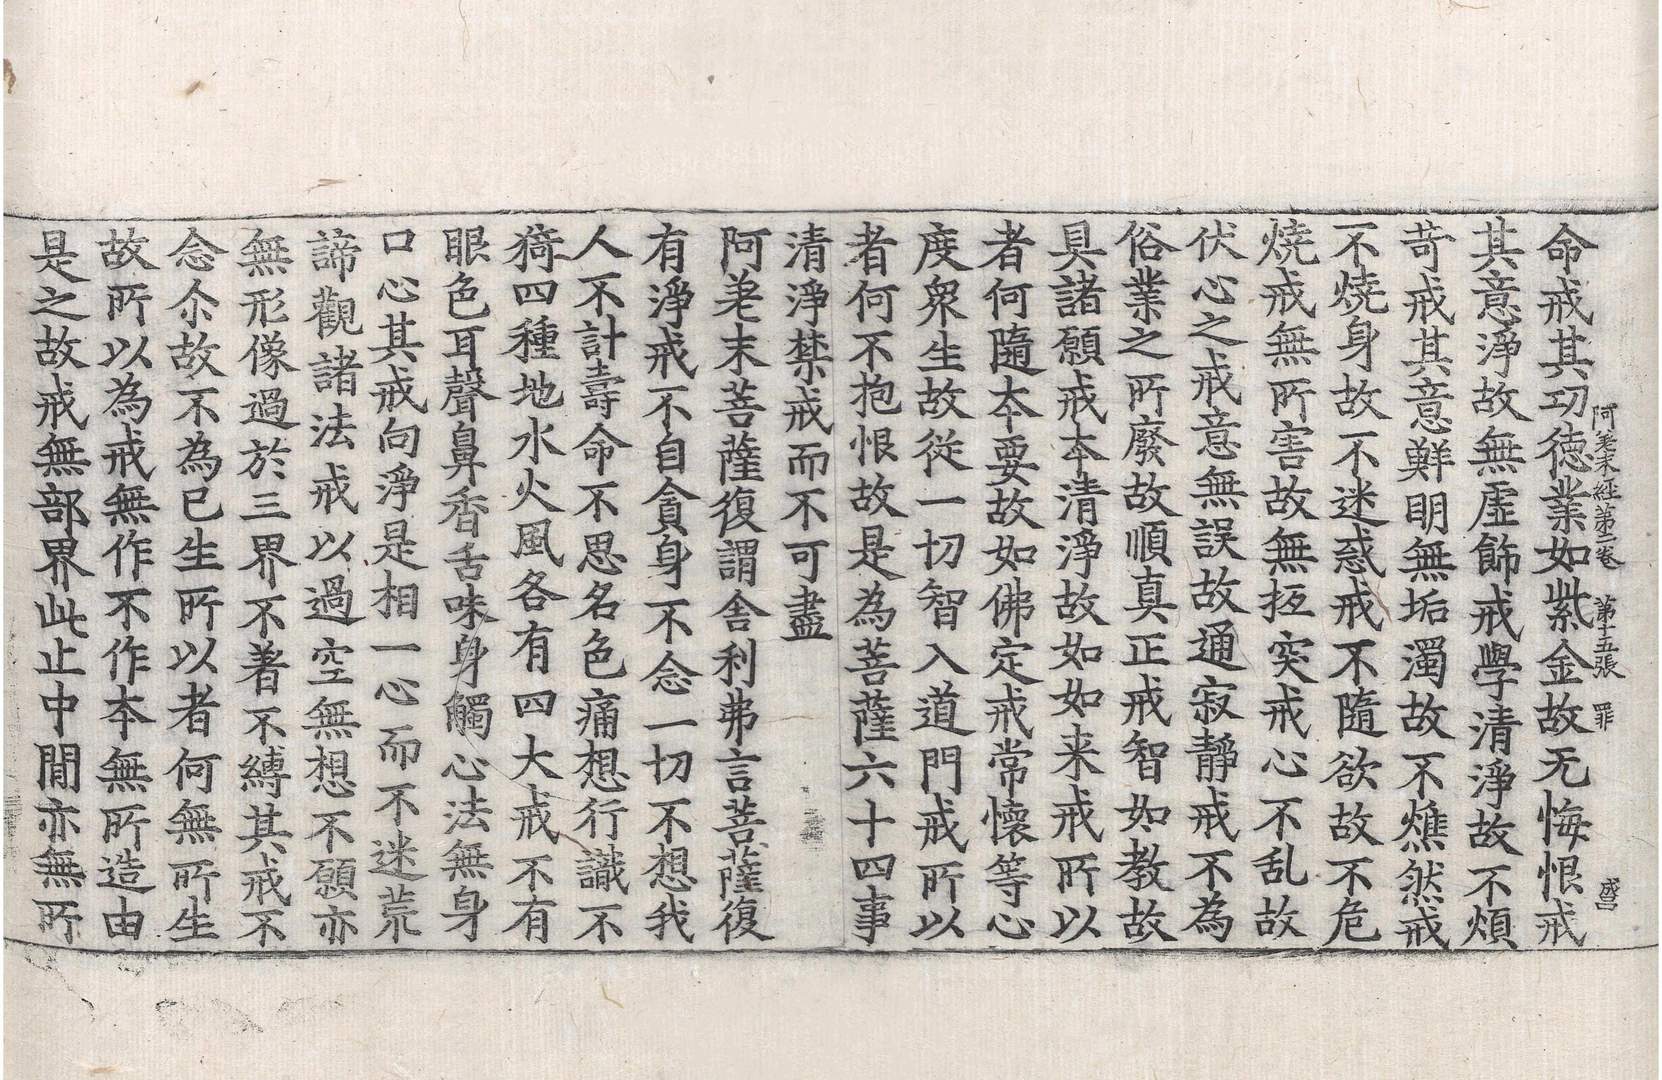 阿差末經第二卷 第十五張 罪 盛
命戒其功德業如紫金故无悔恨戒
其意淨故無虛飾戒學清淨故不煩
苛戒其意鮮明無垢濁故不燋然戒
不燒身故不迷惑戒不隨欲故不危
燒戒無所害故無抂突戒心不乱故
伏心之戒意無誤故通寂靜戒不為
俗業之所廢故順真正戒智如教故
具諸願戒本清淨故如如来戒所以
者何隨本要故如佛定戒常懷等心
度衆生故從一切智入道門戒所以
者何不抱恨故是為菩薩六十四事
清淨禁戒而不可盡
阿差末菩薩復謂舍利弗言菩薩復
有淨戒不自貪身不念一切不想我
人不計壽命不思名色痛想行識不
猗四種地水火風各有四大戒不有
眼色耳聲鼻香舌味身觸心法無身
口心其戒向淨是相一心而不迷荒
諦觀諸法戒以過空無想不願亦
無形像過於三界不著不縛其戒不
念尒故不為已生所以者何無所生
故所以為戒無作不作本無所造由
是之故戒無部界此止中閒亦無所